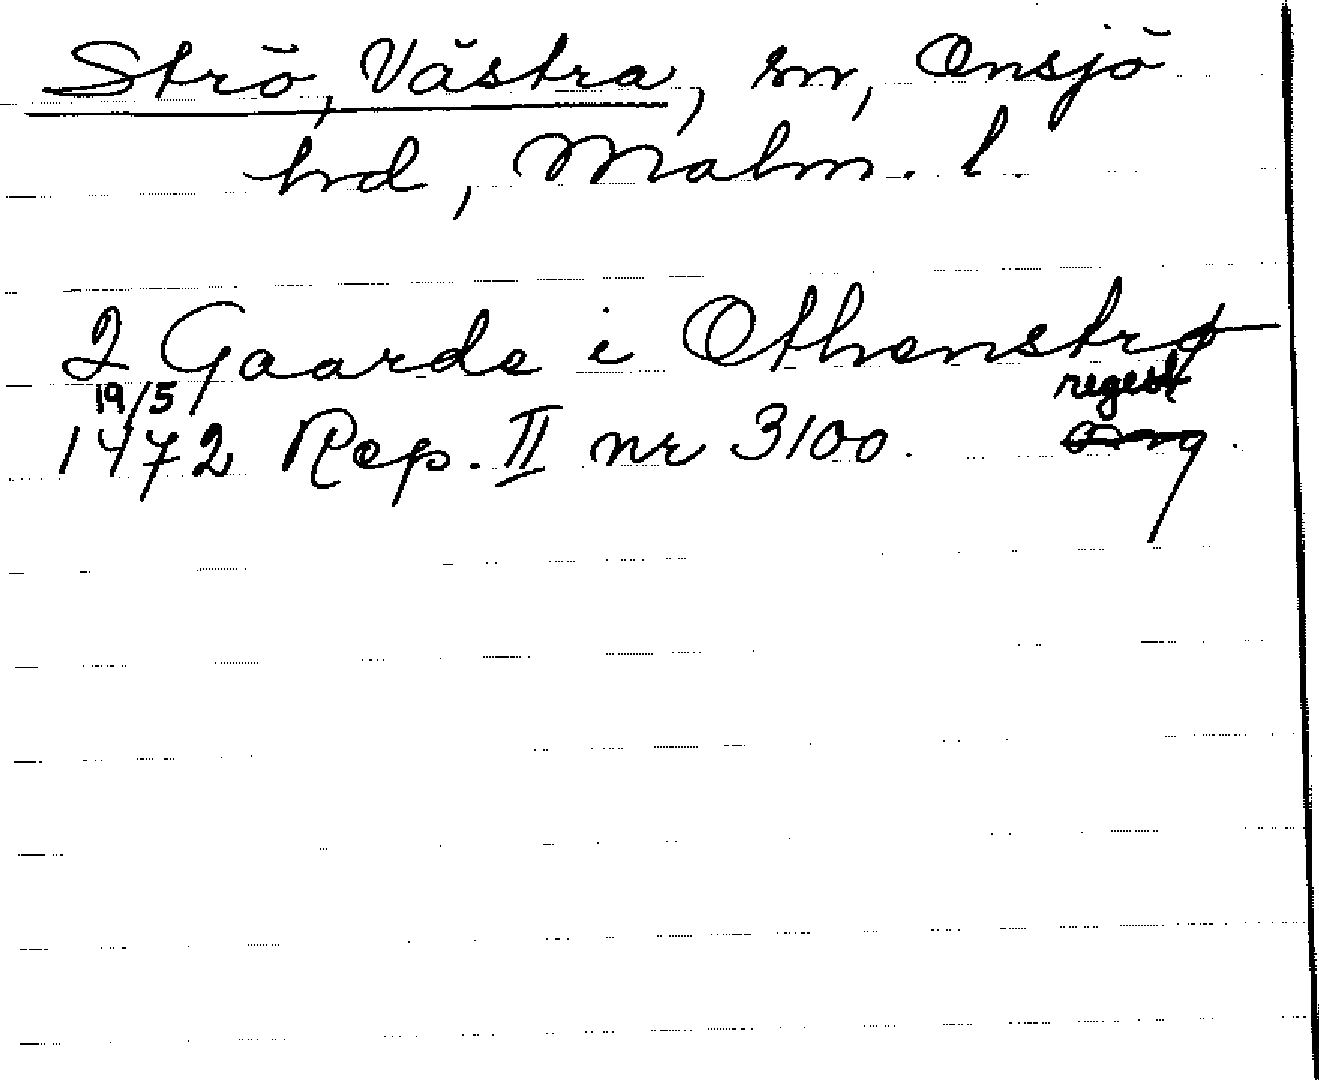 Strö, Västra, sn, Onsjö
hrd, Malm. l.
2 Gaarde i Othenstrø
19/5 regest
1472 Rep. II nr 3100.